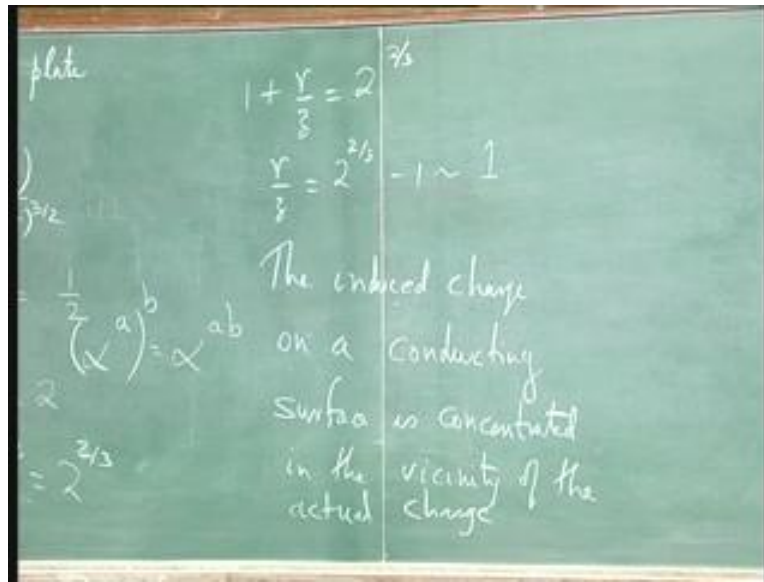 plate
)^{3/2}
= 1/2
(α^a)^b = α^{ab}
2
= 2^{2/3}
1 + r/z = 2^{2/3}
r/z = 2^{2/3} - 1 ~ 1
The induced charge
on a conducting
surface is concentrated
in the vicinity of the
actual charge